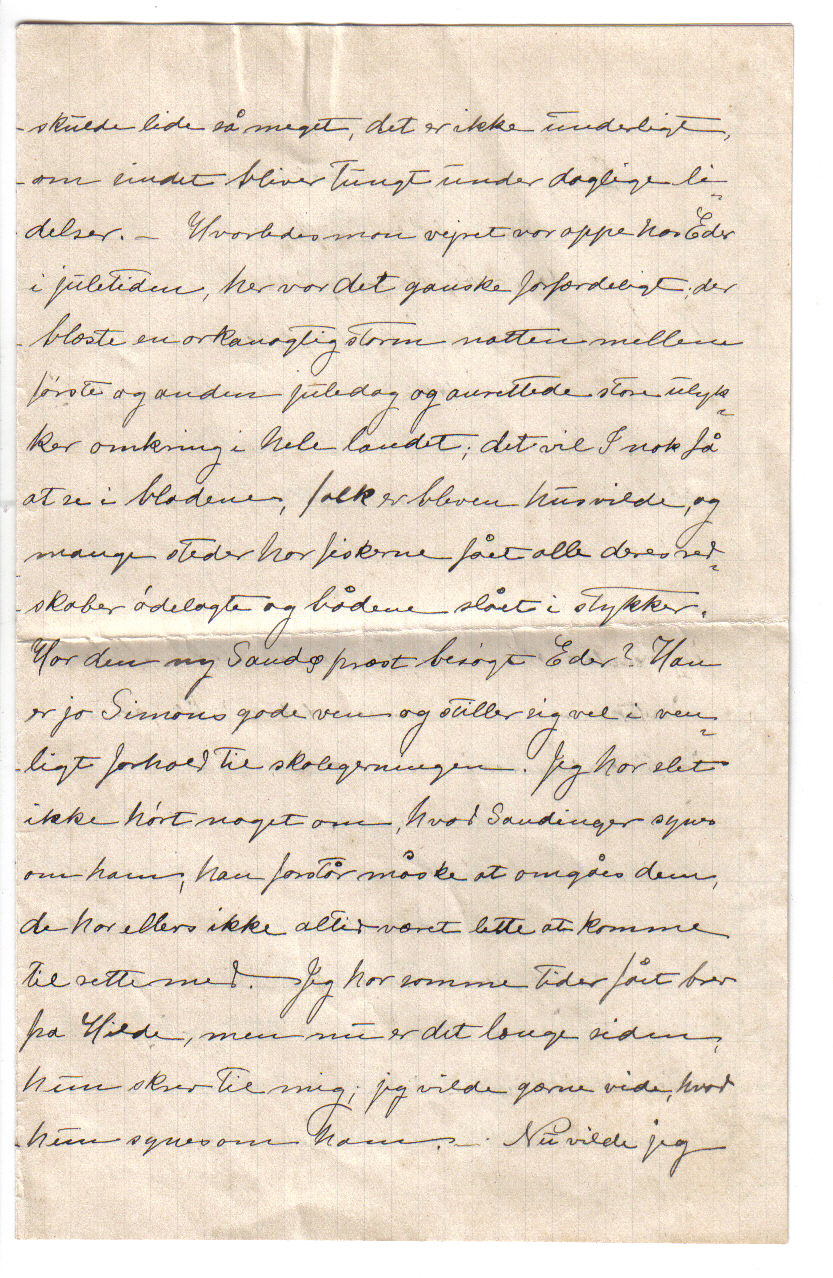 skulde lide så meget, det er ikke underligt,
om sindet bliver tungt under daglige li-
delser. — Hvorledes mon vejret var oppe hos Eder
i juletiden, her var det ganske forfærdeligt; der
blæste en orkanagtig storm natten mellem
første og anden juledag og anrettede store ulyk-
ker omkring i hele landet; det vil I nok få
at se i bladene, folk er bleven husvilde, og
mange steder har fiskerne fået alle deres red-
skaber ødelagte og bådene slået i stykker.
Har den ny Sandøpræst besøgt Eder? Han
er jo Simons gode ven og stiller sig vel i ven-
ligt forhold til skolegerningen. Jeg har slet
ikke hørt noget om, hvad Sandinger synes
om ham, han forstår måske at omgåes dem,
de har ellers ikke altid været lette at komme
til rette med. Jeg har somme tider fået brev
fra Hilde, men nu er det længe siden,
hun skrev til mig; jeg vilde gærne vide, hvad
hun synes om ham. — Nu vilde jeg